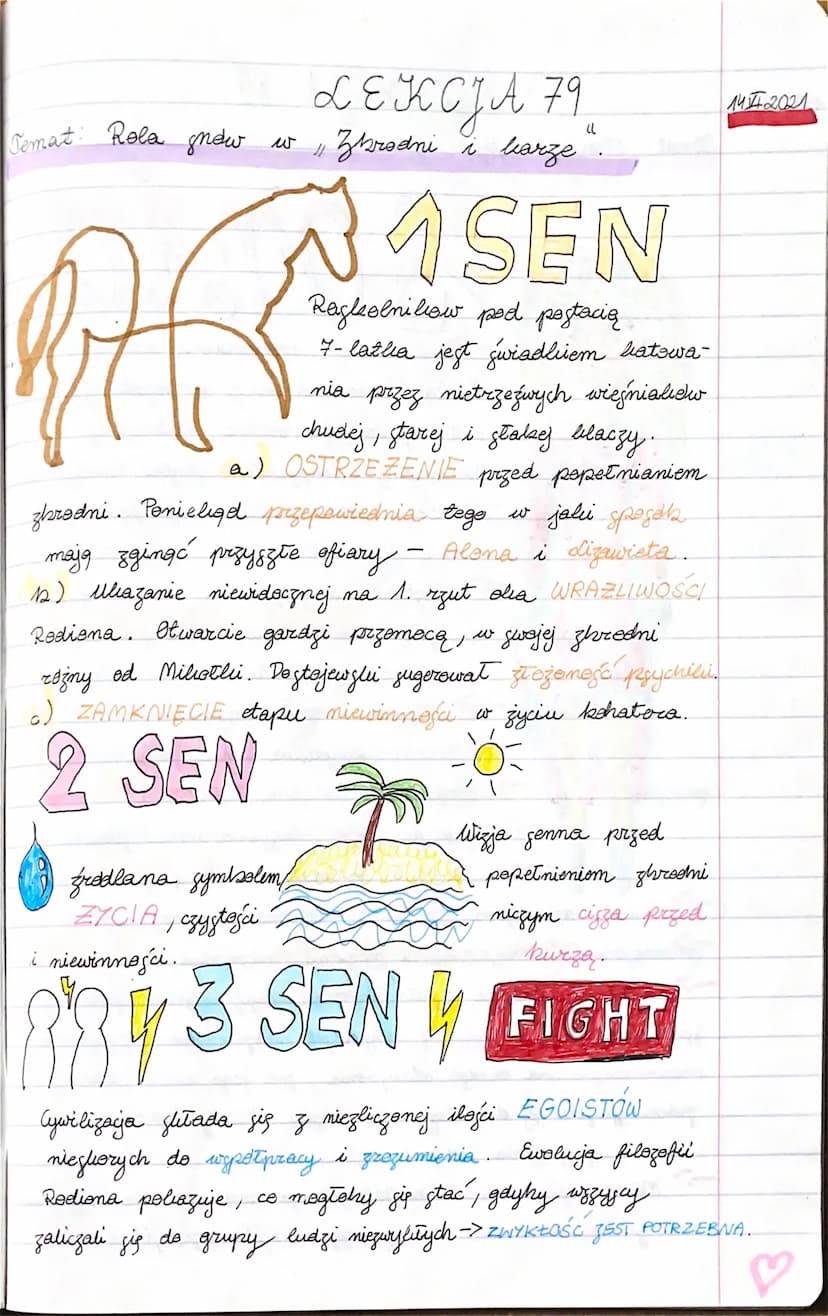 LEKCJA 79
14 VI 2021
Temat: Rola snów w „Zbrodni i karze".
1 SEN
Raskolnikow pod postacią
7-latka jest świadkiem katowa-
nia przez nietrzeźwych wieśniaków
chudej, starej i słabej klaczy.
a) OSTRZEŻENIE przed popełnianiem
zbrodni. Poniekąd przepowiednia tego w jaki sposób
mają zginąć przyszłe ofiary – Alona i Lizawieta.
b) Ukazanie niewidocznej na 1. rzut oka WRAŻLIWOŚCI
Rodiona. Otwarcie gardzi przemocą, w swojej zbrodni
różny od Mikołki. Dostojewski sugerował złożoność psychiki.
c) ZAMKNIĘCIE etapu niewinności w życiu bohatera.
2 SEN
źródlana symbolem
ŻYCIA, czystości
i niewinności.
Wizja senna przed
popełnieniem zbrodni
niczym cisza przed
burzą.
3 SEN
FIGHT
Cywilizacja składa się z niezliczonej ilości EGOISTÓW
nieskorych do współpracy i zrozumienia. Ewolucja filozofii
Rodiona pokazuje, co mogłoby się stać, gdyby wszyscy
zaliczali się do grupy ludzi niezwykłych -> ZWYKŁOŚĆ JEST POTRZEBNA.